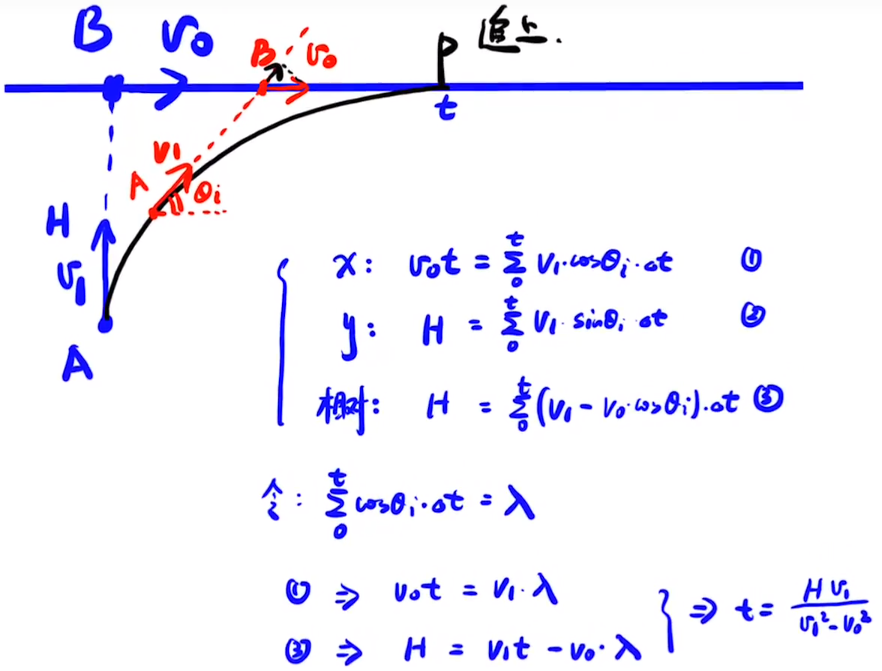 B v₀ B v₀ P 追上.
t
v₁
A θᵢ
H
v₁
A
x: v₀t = Σ₀ᵗ v₁·cosθᵢ·Δt ①
y: H = Σ₀ᵗ v₁·sinθᵢ·Δt ②
相对: H = Σ₀ᵗ (v₁ - v₀·cosθᵢ)·Δt ③
令: Σ₀ᵗ cosθᵢ·Δt = λ
① ⇒ v₀t = v₁·λ
③ ⇒ H = v₁t - v₀·λ } ⇒ t = Hv₁/(v₁² - v₀²)